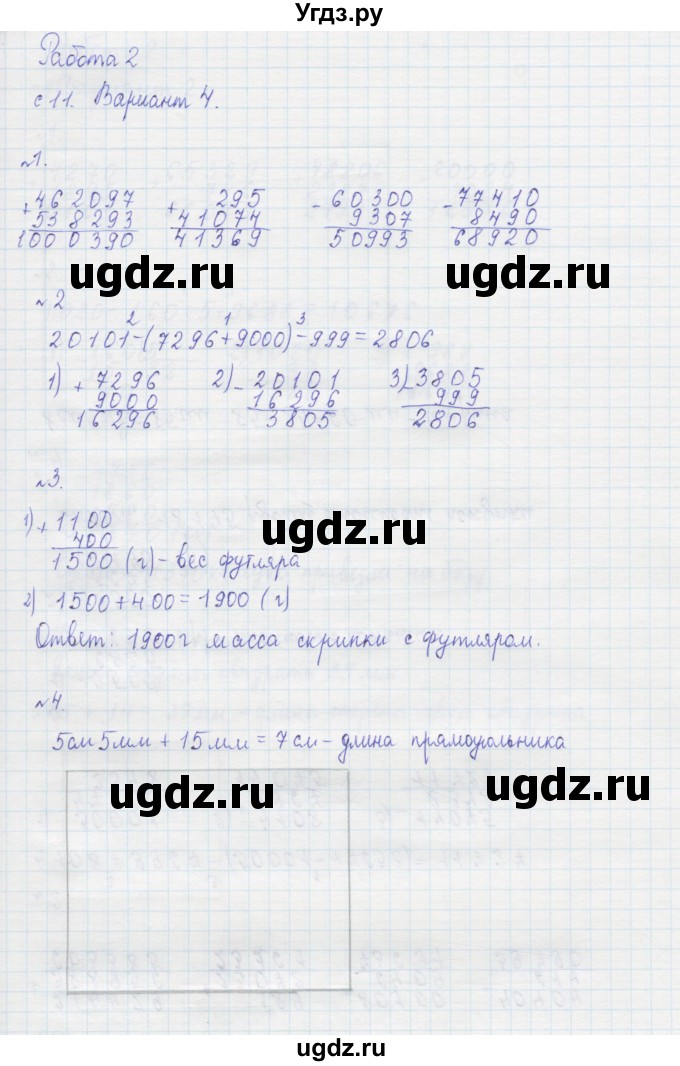 Угдз.ру
Работа 2
с 11. Вариант 4.
№1.
+462097 + 295 -60300 -77410
538293 41074 9307 8490
1000390 41369 50993 68920
ugdz.ru ugdz.ru
№2
2 1 3
20101-(7296+9000)-999=2806
1) +7296 2) -20101 3) -3805
9000 16296 999
16296 3805 2806
№3.
ugdz.ru
1) +1100
400
1500 (г) - вес футляра
2) 1500+400=1900 (г)
Ответ: 1900г масса скрипки с футляром.
№4.
5см 5мм + 15мм = 7см - длина прямоугольника
ugdz.ru ugdz.ru
ugdz.ru